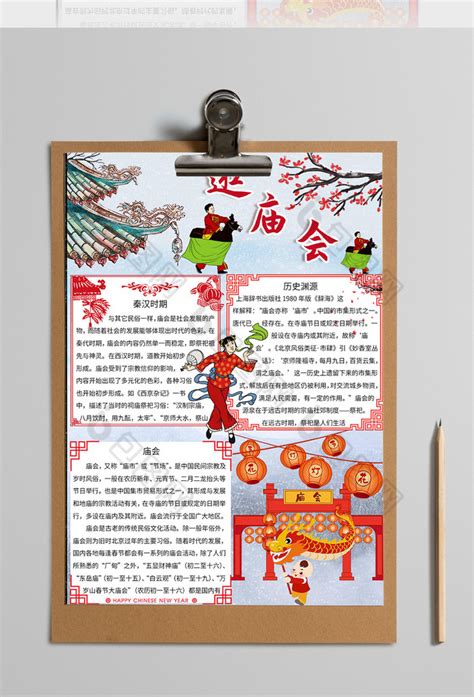 逛庙会
历史渊源
上海辞书出版社 1980 年版《辞海》这
样解释：“庙会亦称‘庙市’。中国的集市形式之一。
唐代已经存在。在寺庙节日或规定日期举行。一
般设在寺庙内或其附近，故称‘
《北京风俗类征·市肆》引《妙香室丛
话》：‘京师隆福寺，每月九日，百货云集，
谓之庙会。’ 这一历史上遗留下来的市集形
式，解放后在有些地区仍被利用，对交流城乡物资，
满足人民需要，有一定的作用。” 庙会的
源来在于远古时期的宗庙社郊制度——祭祀。
在远古时期的祭祀，人们生活
秦汉时期
与其它民俗一样，庙会是社会发展的产
物，而随着社会的发展能够体现出时代的色彩。在
秦代时期，庙会的内容仍然单一而稳定，即祭祀祖
先与神灵。在西汉时期，道教开始初步形
成。庙会受到了宗教信仰的影响，
内容开始出现了多元化的色彩，各种习俗
也开始初步形成。如《西京杂记》一书
中，描述了当时的祭祀习俗：“汉制宗庙，
八月饮酎，用九酝，太牢” 、“京师大水，祭山
庙会
庙会，又称“庙市”或“节场”。是中国民间宗教及
岁时风俗，一般在农历新年、元宵节、二月二龙抬头等
节日举行。也是中国集市贸易形式之一，其形成与发展
和地庙的宗教活动有关，在寺庙的节日或规定的日期举
行，多设在庙内及其附近。庙会流行于全国广大地区。
庙会是古老的传统民俗文化活动。除一般年俗外，
庙会则为旧时北京过年的主要习俗。随着时代的发展，
国内各地每逢春节都会有一系列的庙会活动，除了人们
所熟悉的“厂甸”之外，“五显财神庙”（初二至十六）、
“东岳庙”（初一至十五）、“白云观”（初一至十九）、“万
岁山春节大庙会”（农历初一至十六）都是国内有
HAPPY CHINESE NEW YEAR
庙会